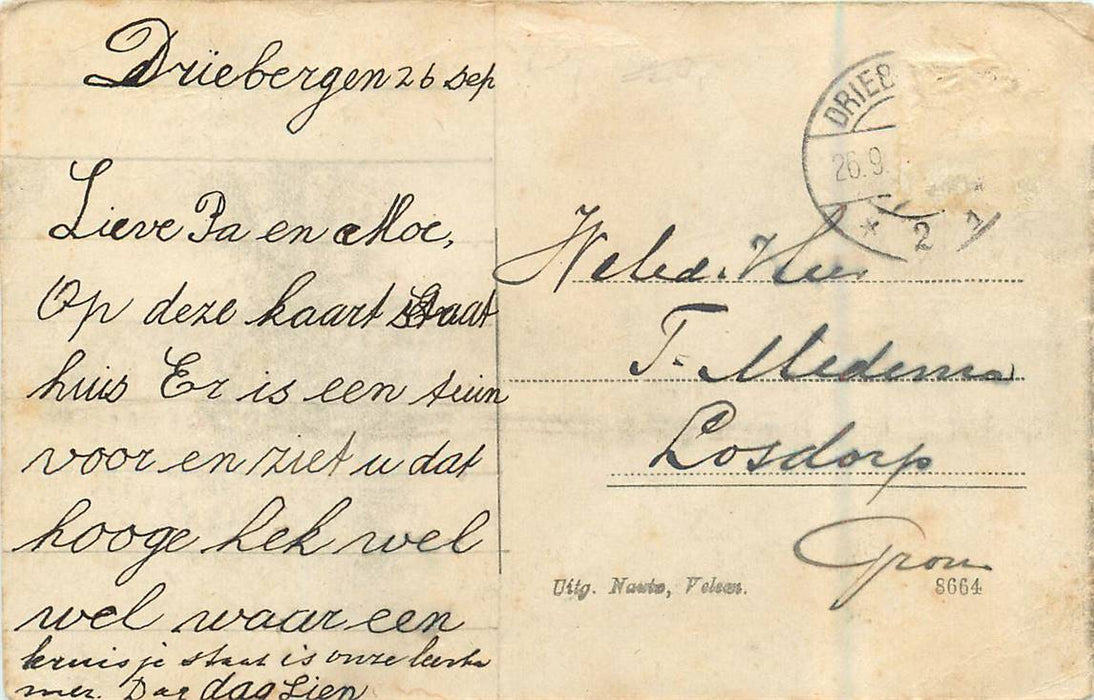 Drïebergen 26 Sep
Lieve Pa en Moe,
Op deze kaart staat
huis Er is een tuin
voor en ziet u dat
hooge hek wel
wel waar een
kruisje staat is onze leerka
mer. Dag dag Lien
DRIEB
26.9.
* 2 1
WelEd. Heer
T. Medema
Losdorp
Gron
Uitg. Nauta, Velsen.
8664